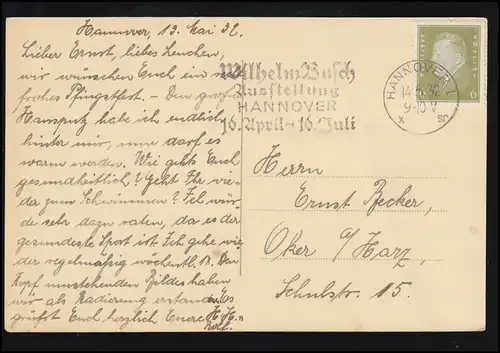 Hannover, 13. Mai 32.
Lieber Ernst, liebes Lenchen,
wir wünschen Euch ein
frohes Pfingstfest. - Den großen
Hausputz habe ich endlich
hinter mir, nun darf es
warm werden. Wie geht's Euch
gesundheitlich? Geht Ihr wie-
da zum Schwimmen? Ich wür-
de sehr dazu raten, da es der
gesundeste Sport ist. Ich gehe wie-
der regelmäßig wöchentl. Den
Kopf umstehenden Bildes haben
wir als Radierung erstanden. Es
grüßt Euch herzlich Euere H. H.
Wilhelm Busch
Ausstellung
HANNOVER
16. April - 16. Juli
HANNOVER 1
14.5.32
9-10 V
x SC
6
Herrn
Ernst Becker,
Oker a/Harz,
Schulstr. 15.